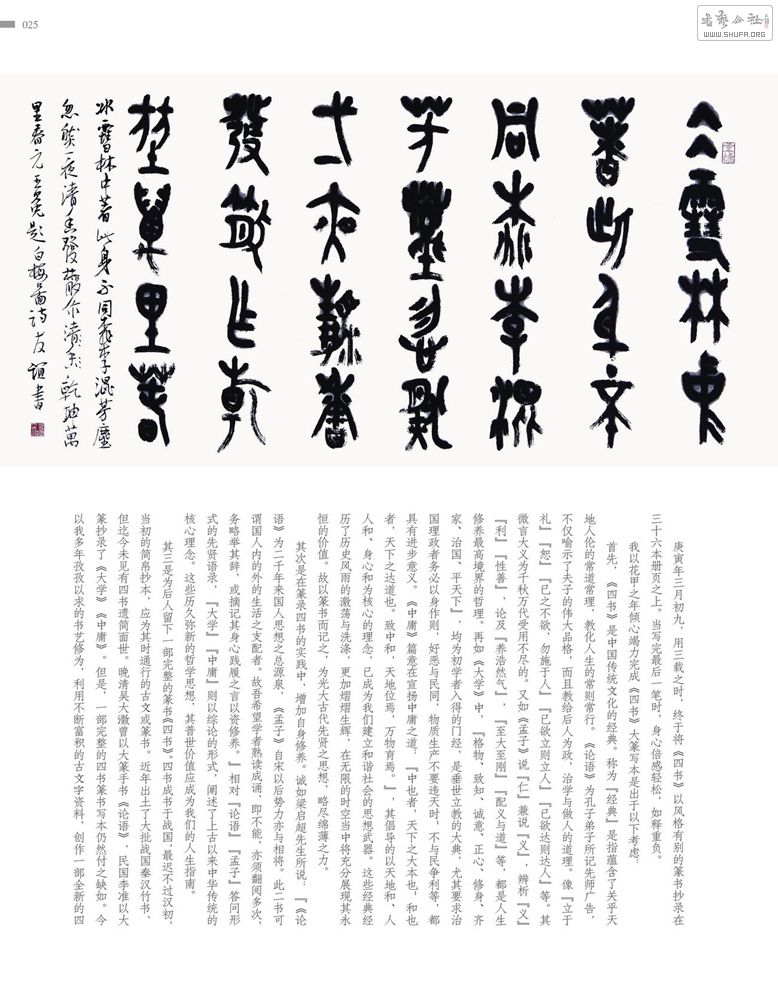 025
書藝公社
WWW.SHUFA.ORG
仌雪林中
著此身不
同桃李混
芳塵忽然
弌夜靜香
發散作乾
坤萬里春
冰雪林中著此身不同桃李混芳塵
忽然一夜清香發散作乾坤萬
里春 元王冕題白梅圖詩 友誼書
庚寅年三月初九，用三载之时，终于将《四书》以风格有别的篆书抄录在
三十六本册页之上。当写完最后一笔时，身心倍感轻松，如释重负。
我以花甲之年倾心竭力完成《四书》大篆写本是出于以下考虑：
首先，《四书》是中国传统文化的经典。称为『经典』是指蕴含了关乎天
地人伦的常道常理，教化人生的常则常行。《论语》为孔子弟子所记先师广告，
不仅喻示了夫子的伟大品格，而且教给后人为政、治学与做人的道理。像『立于
礼』『恕』『己之不欲，勿施于人』『己欲立则立人』『已欲达则达人』等。其
微言大义为千秋万代受用不尽的。又如《孟子》说『仁』兼说『义』，辨析『义』
『利』『性善』，论及『养浩然气』，『至大至刚』『配义与道』等，都是人生
修养最高境界的哲理。再如《大学》中，『格物、致知、诚意、正心、修身、齐
家、治国、平天下』，均为初学者入得的门经，是垂世立教的大典，尤其要求治
国理政者务必以身作则，好恶与民同，物质生产不要违天时，不与民争利等，都
具有进步意义。《中庸》篇意在宣扬中庸之道，『中也者，天下之大本也，和也
者，天下之达道也。致中和，天地位焉，万物育焉。』，其倡导的以天地和、人
人和、身心和为核心的理念，已成为我们建立和谐社会的思想武器。这些经典经
历了历史风雨的激荡与洗涤，更加熠熠生辉，在无限的时空当中将充分展现其永
恒的价值。故以篆书而记之，为光大古代先贤之思想，略尽绵薄之力。
其次是在篆录四书的实践中，增加自身修养。诚如梁启超先生所说：『《论
语》为二千年来国人思想之总源泉，《孟子》自宋以后势力亦与相将。此二书可
谓国人内的外的生活之支配者。故吾希望学者熟读成诵，即不能，亦须翻阅多次，
务略举其辞，或摘记其身心践履之言以资修养。』相对『论语』『孟子』答问形
式的先贤语录，『大学』『中庸』则以综论的形式，阐述了上古以来中华传统的
核心理念。这些历久弥新的哲学思想，其普世价值应成为我们的人生指南。
其三是为后人留下一部完整的篆书《四书》。四书成书于战国，最迟不过汉初，
当初的简帛抄本，应为其时通行的古文或篆书。近年出土了大批战国秦汉竹书，
但迄今未见有四书遗简面世。晚清吴大澂曾以大篆手书《论语》，民国李准以大
篆抄录了《大学》《中庸》。但是，一部完整的四书篆书写本仍然付之缺如。今
以我多年孜孜以求的书艺修为，利用不断富积的古文字资料，创作一部全新的四